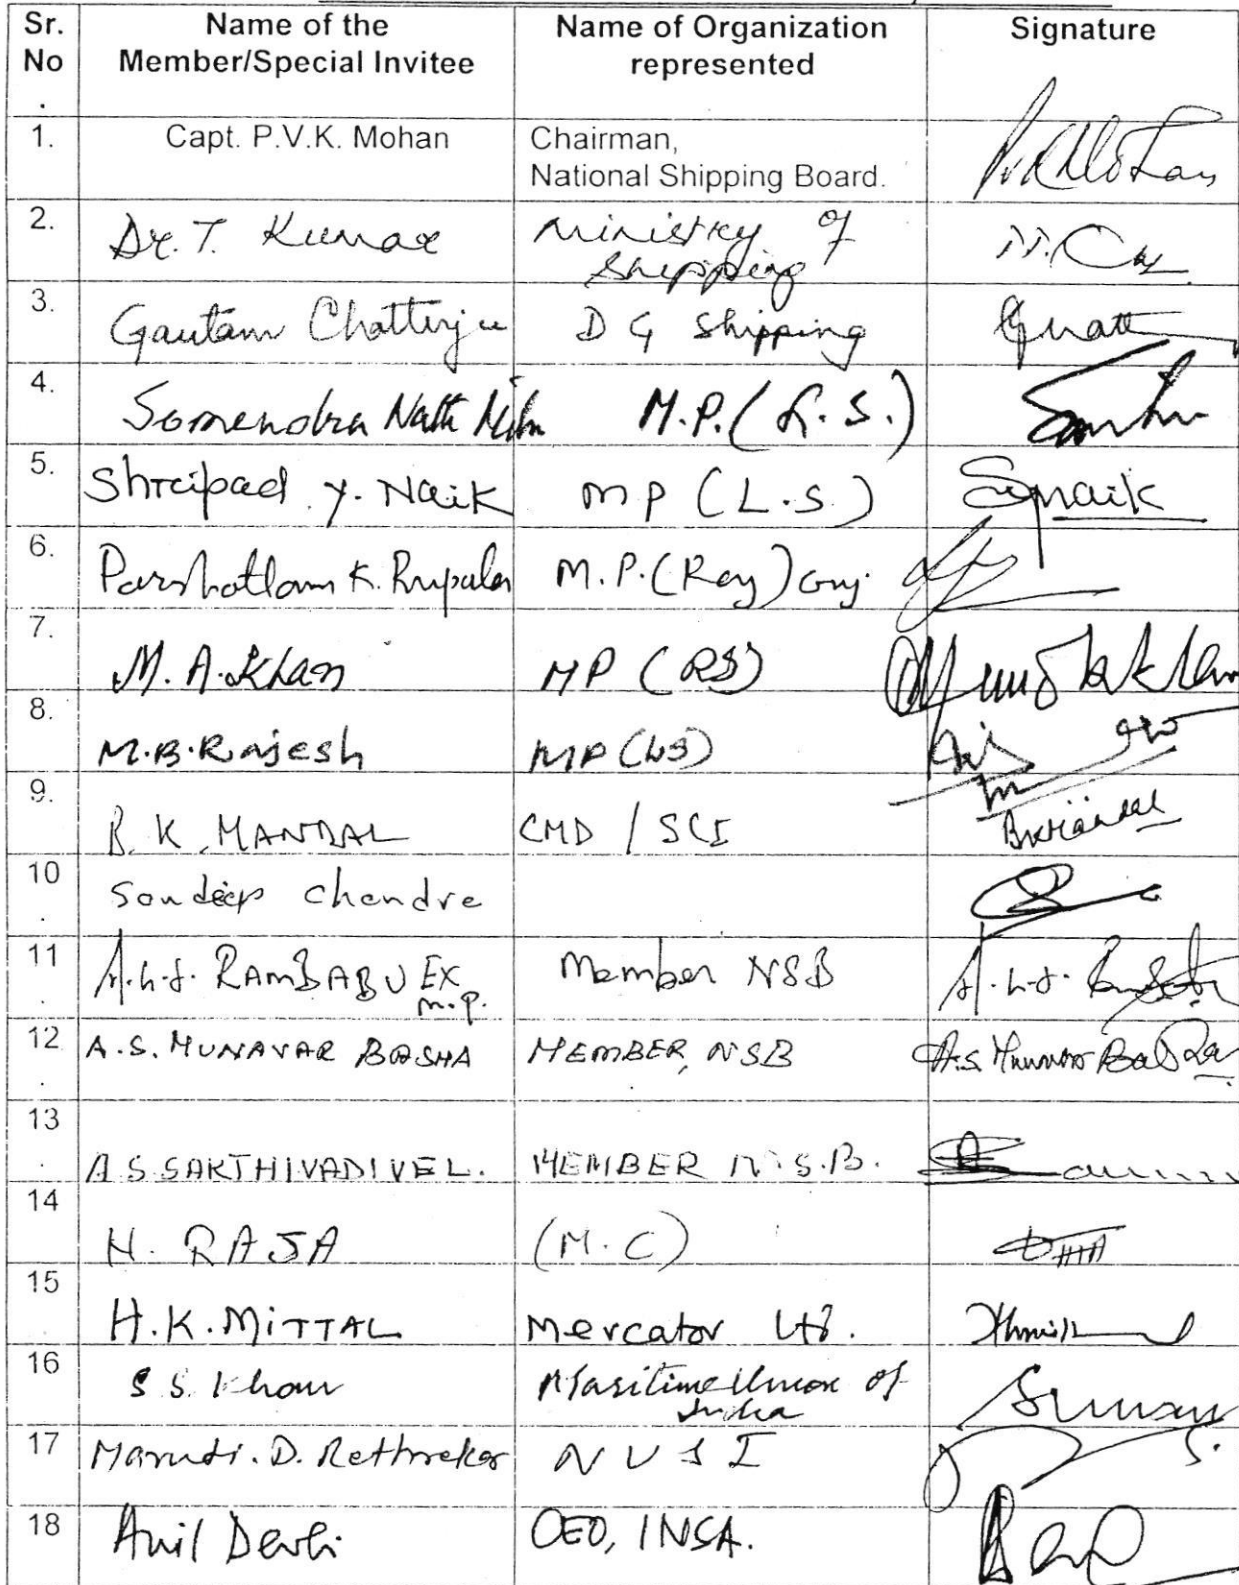 Sr. No . Name of the Member/Special Invitee Name of Organization represented Signature
1. Capt. P.V.K. Mohan Chairman, National Shipping Board.
2. Dr. T. Kumar Ministry of Shipping
3. Gautam Chatterjee D G Shipping
4. Somendra Nath M.P. (L.S.)
5. Shripad Y. Naik MP (L.S.) Synaik
6. Parshottam K. Rupala M.P. Guj.
7. M. A. Khan MP (RS)
8. M.B. Rajesh MP (LS)
9. B. K. MANDAL CMD / SCI
10 . Sandeep Chandra
11 . RAMBABU EX M.P. Member NSB
12 . A.S. MUNAVAR BASHA MEMBER, NSB A.S. Munavar Basha
13 . A.S SAKTHIVADIVEL. MEMBER N.S.B.
14 H. RAJA (M.C)
15 H.K. MiTTAL Mercator Ltd.
16 S S. Khan Maritime Union of India
17 Maruti. D. NUSI
18 Anil Devli CEO, INSA.